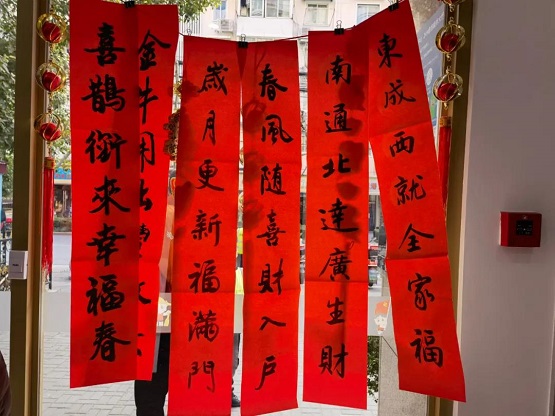 東成西就全家福
南通北達廣生財
春風随喜財入户
歲月更新福滿門
金牛
喜鵲銜來幸福春